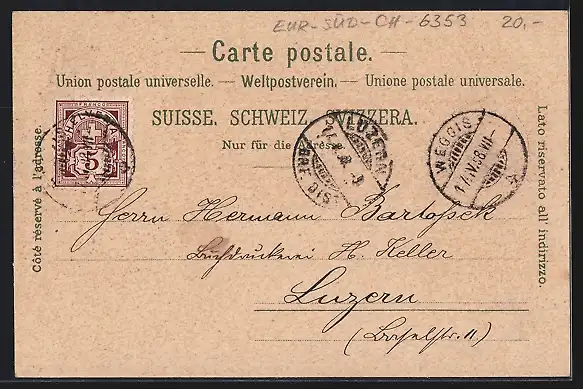 EUR-SÜD-CH-6353 20.-
Carte postale.
Union postale universelle. — Weltpostverein. — Unione postale universale.
SUISSE. SCHWEIZ. SVIZZERA.
Nur für die Adresse.
Côté réservé à l'adresse.
Lato riservato all indirizzo.
FRANCO
HELVETIA
5
LUZERN
WEGGIS
17.IV.98.VII-
Herrn Hermann Bartopek
Buchdruckerei H. Keller
Luzern
(Baselstr. 11)